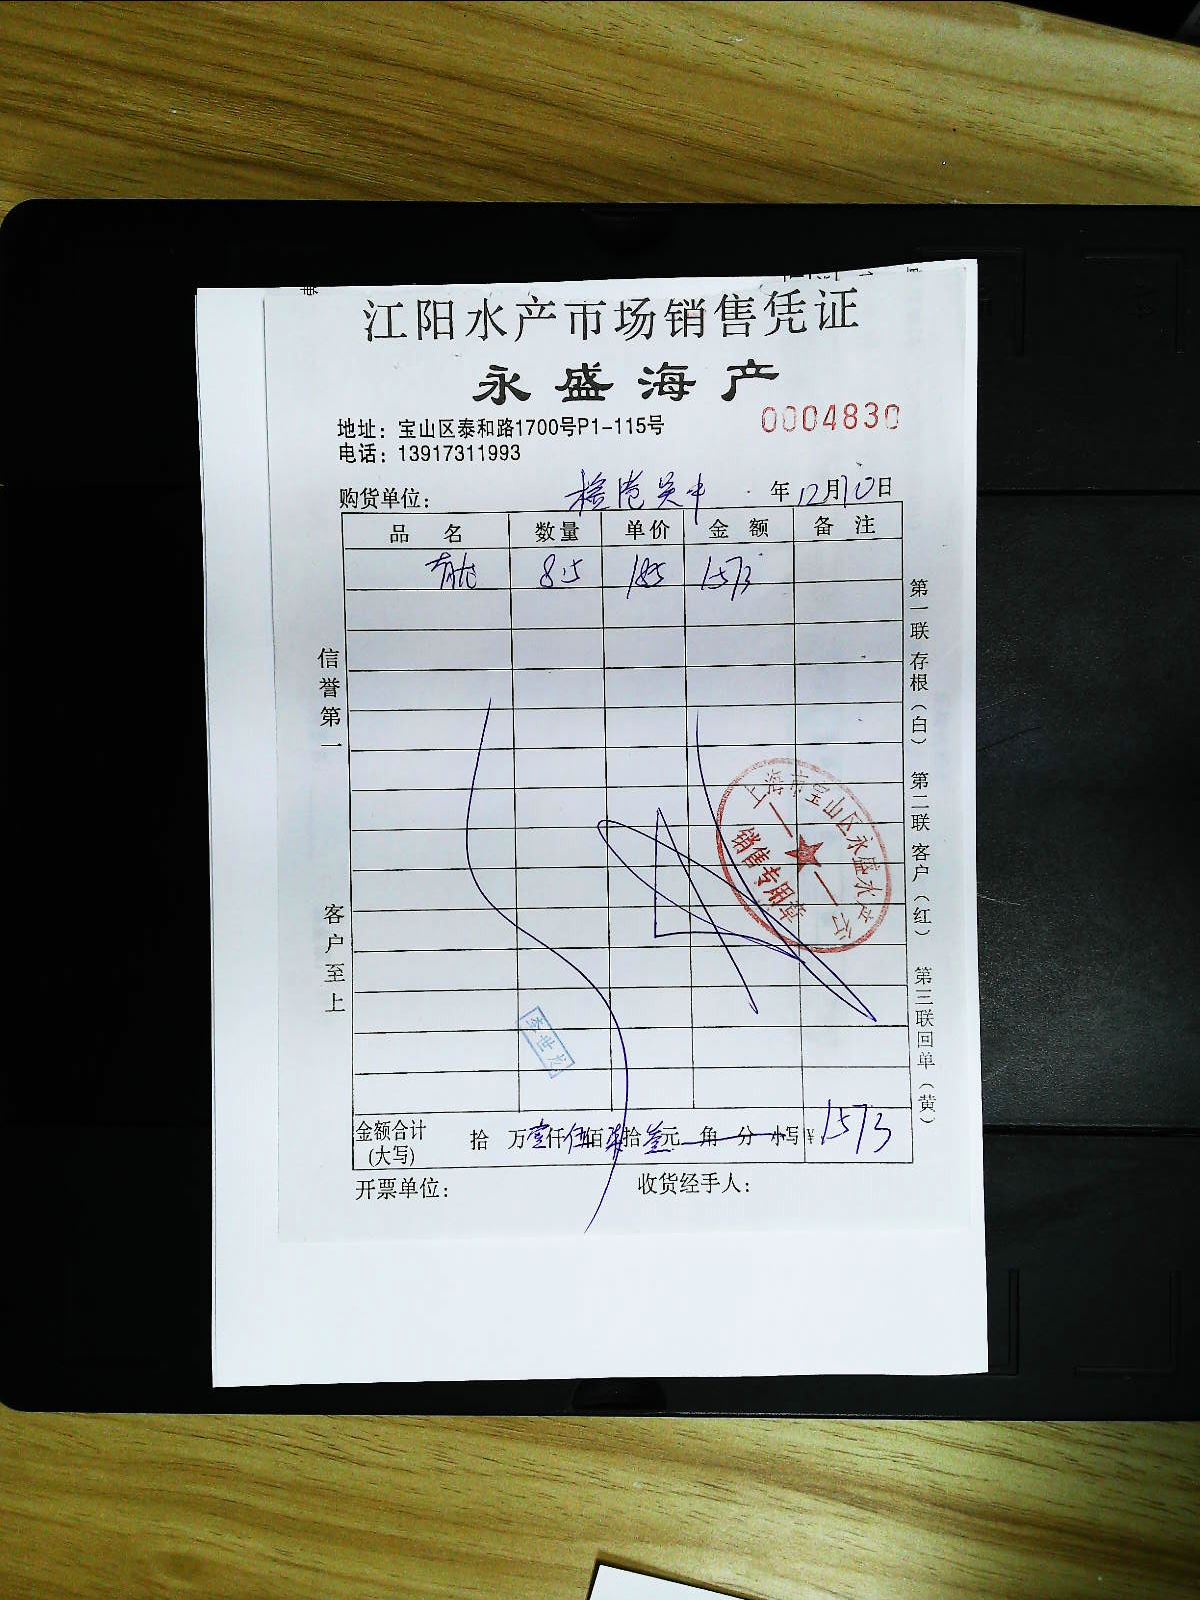 江阳水产市场销售凭证
永盛海产
0004830
地址：宝山区泰和路1700号P1-115号
电话：13917311993
购货单位： 年12月10日
品 名 数量 单价 金 额 备 注
青龙 8.5 185 1573
信誉第一
客户至上
第一联 存根（白） 第二联 客户（红） 第三联 回单（黄）
上海市宝山区永盛水产
销售专用章
李世龙
金额合计（大写） 拾 万壹仟伍佰柒拾叁元 角 分 小写￥1573
开票单位： 收货经手人：